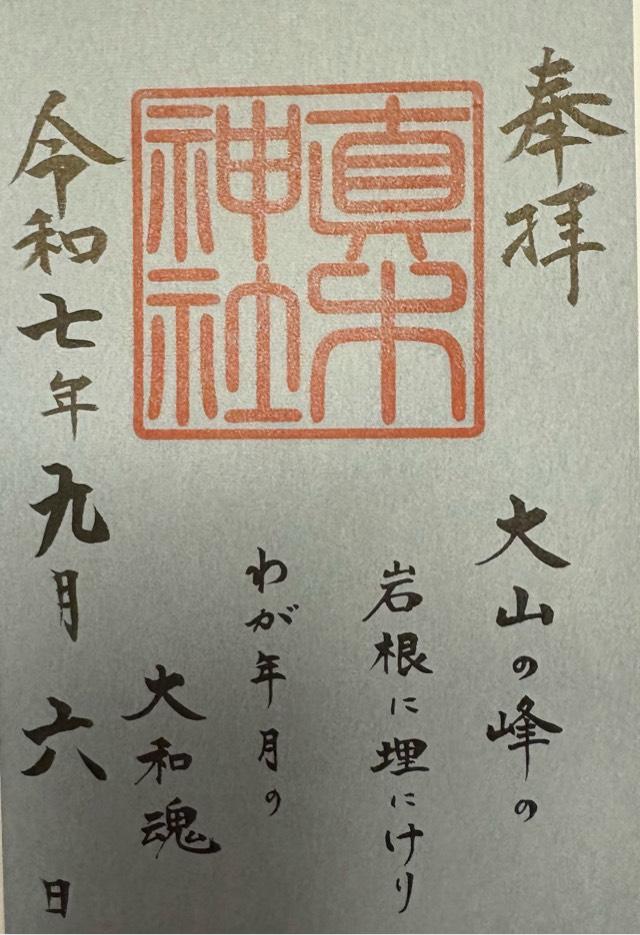 奉拝
眞木神社
大山の峰の
岩根に埋にけり
わが年月の
大和魂
令和七年九月六日